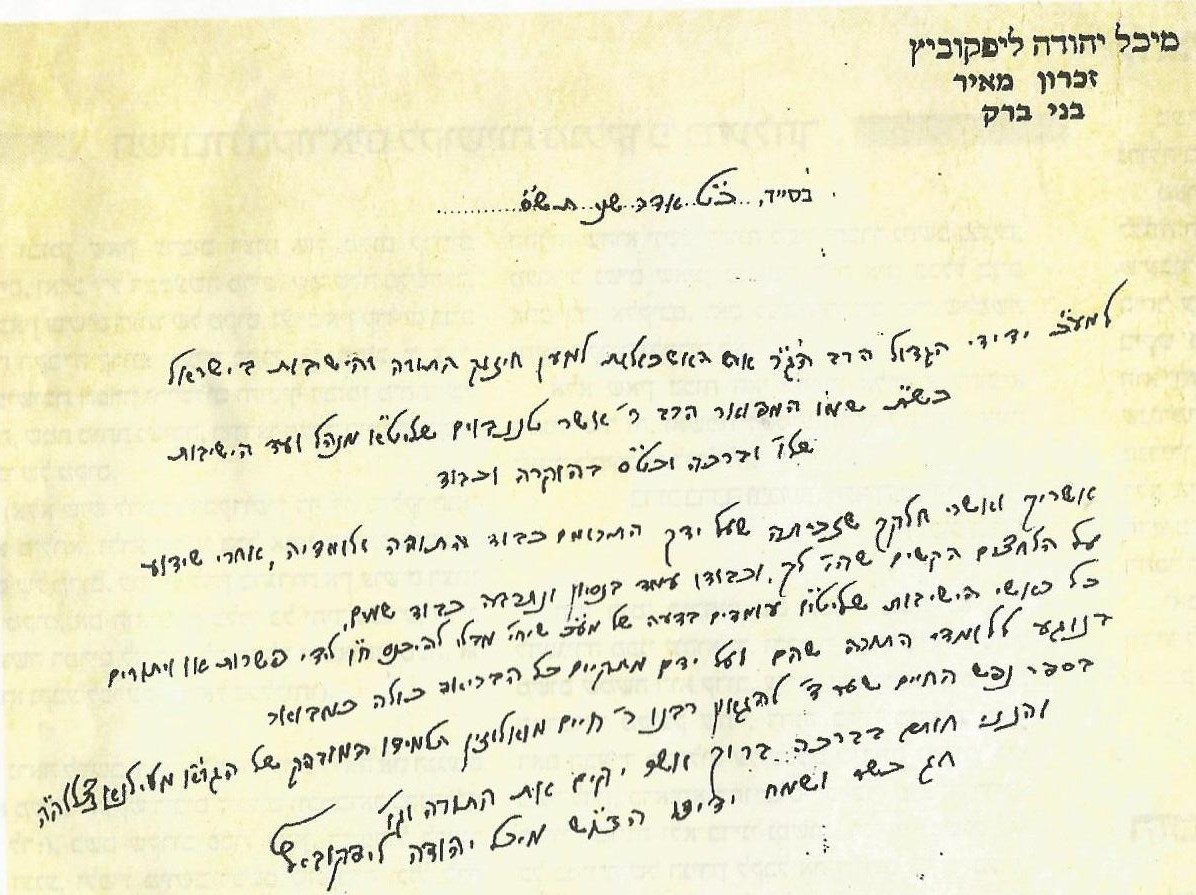 מיכל יהודה ליפקוביץ
זכרון מאיר
בני ברק
בס"ד, כ"ט אדר שני תש"ס
למע"כ ידידי הגדול הרב הג"ר איש האשכולות למען חיזוק התורה והישיבות בישראל
כש"ת שמו המפואר הרב ר' אשר טננבוים שליט"א מנהל ועד הישיבות
שלו' וברכה וכט"ס בהוקרה וכבוד
אשריך ואשרי חלקך שזכית שעל ידך התרומם כבוד התורה ולומדיה, אחרי שידוע
על הלחצים הקשים שהי' לך, וכבודו עמד בנסיון ונתרבה כבוד שמים,
כל ראשי הישיבות שליט"א עומדים בדעה של מע"כ שיחי' מבלי להיכנס ח"ו לידי פשרות או ויתורים
בנוגע ללומדי התורה שהם ועל ידם מתקיים כל הבריאה כולה כמבואר
בספר נפש החיים שער ד' להגאון רבנו ר' חיים מוואלוזין תלמידו המובהק של הגר"א מווילנא זצללה"ה
והנני חותם בברכה ברוך אשר יקים את התורה וגו'
חג כשר ושמח ידידו הצ' מיכל יהודה ליפקוביץ